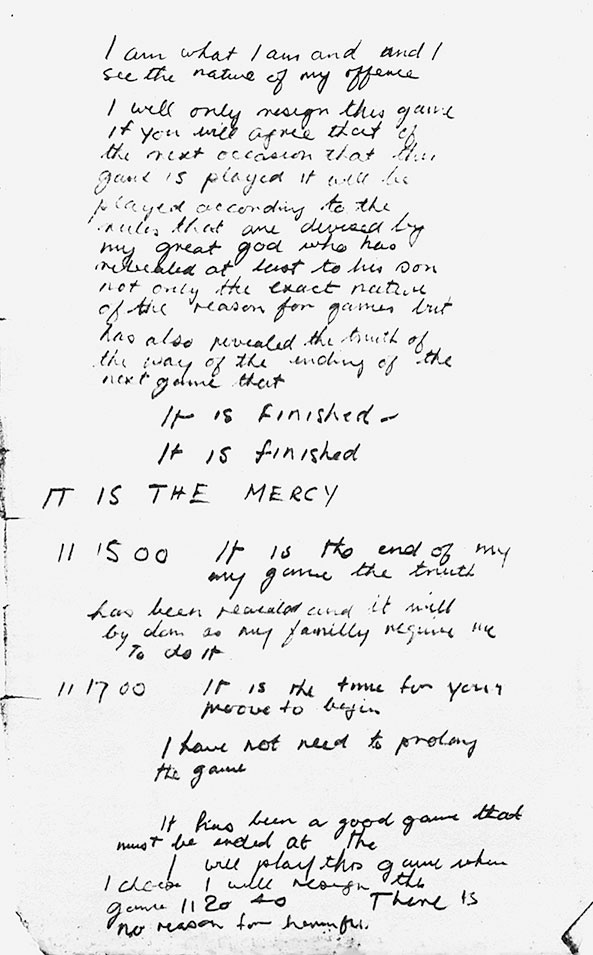 I am what I am and and I
see the nature of my offence
I will only resign this game
if you will agree that of
the next occasion that this
game is played it will be
played according to the
rules that are devised by
my great god who has
revealed at last to his son
not only the exact nature
of the reason for games but
has also revealed the truth of
the way of the ending of the
next game that
It is finished -
It is finished
IT IS THE MERCY
11 15 00 It is the end of my
my game the truth
has been revealed and it will
by don as my familly require me
To do it
11 17 00 It is the time for your
moove to begin
I have not need to prolong
the game
It has been a good game that
must be ended at the
I will play this game when
I chose I will resign the
game 11 20 40 There is
no reason for harmful.